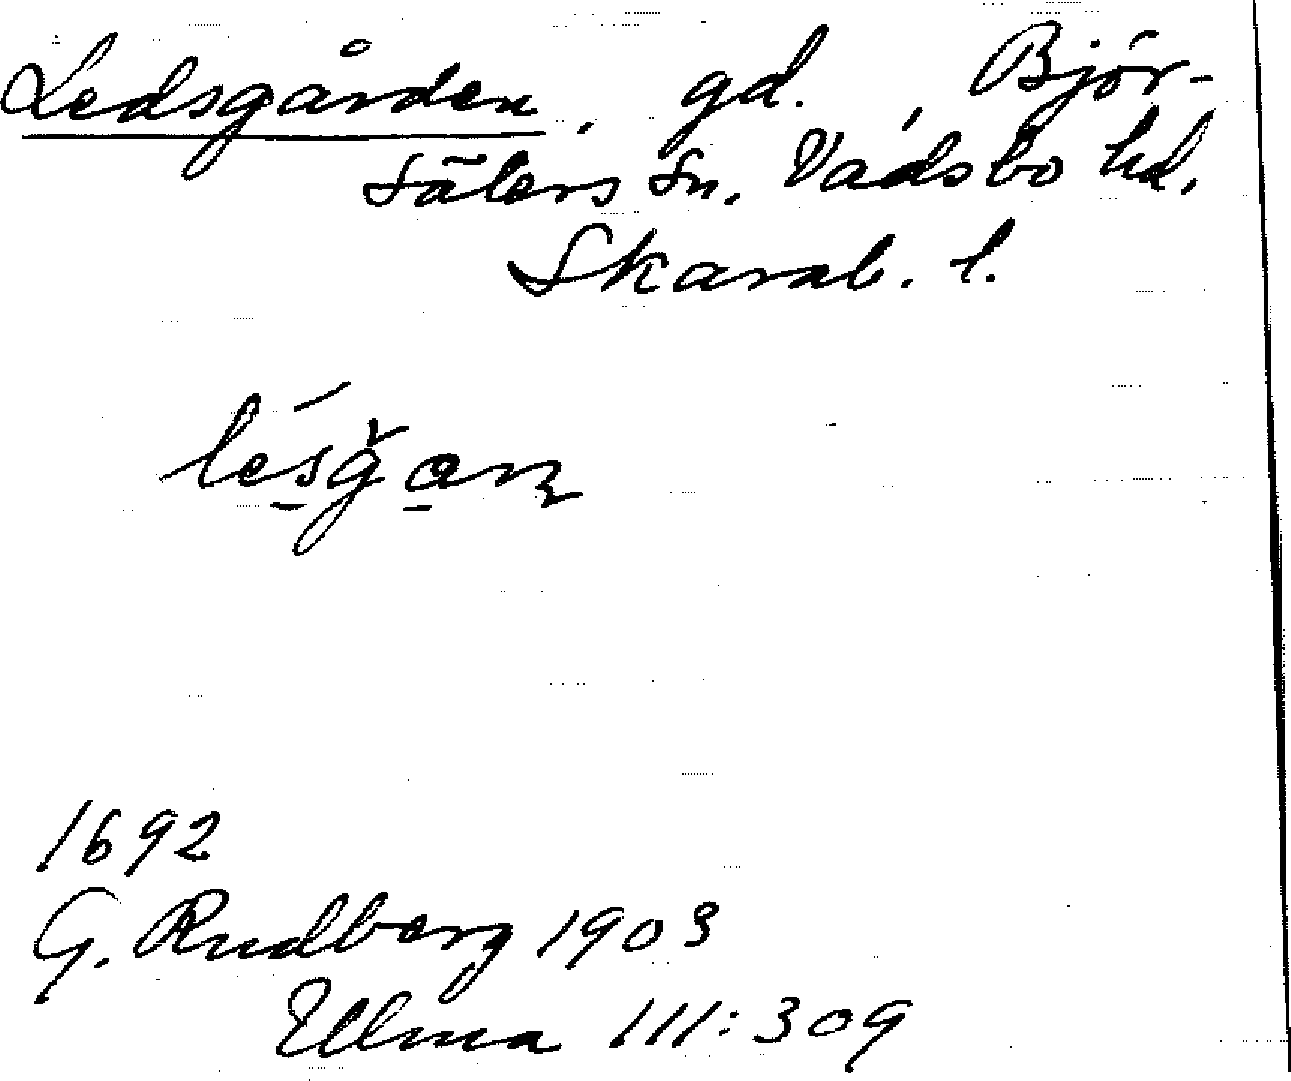 Ledsgården, gd., Björ-
säters sn. Vadsbo hd.
Skarab. l.
1692
G. Rudberg 1903
Ulma 111:309